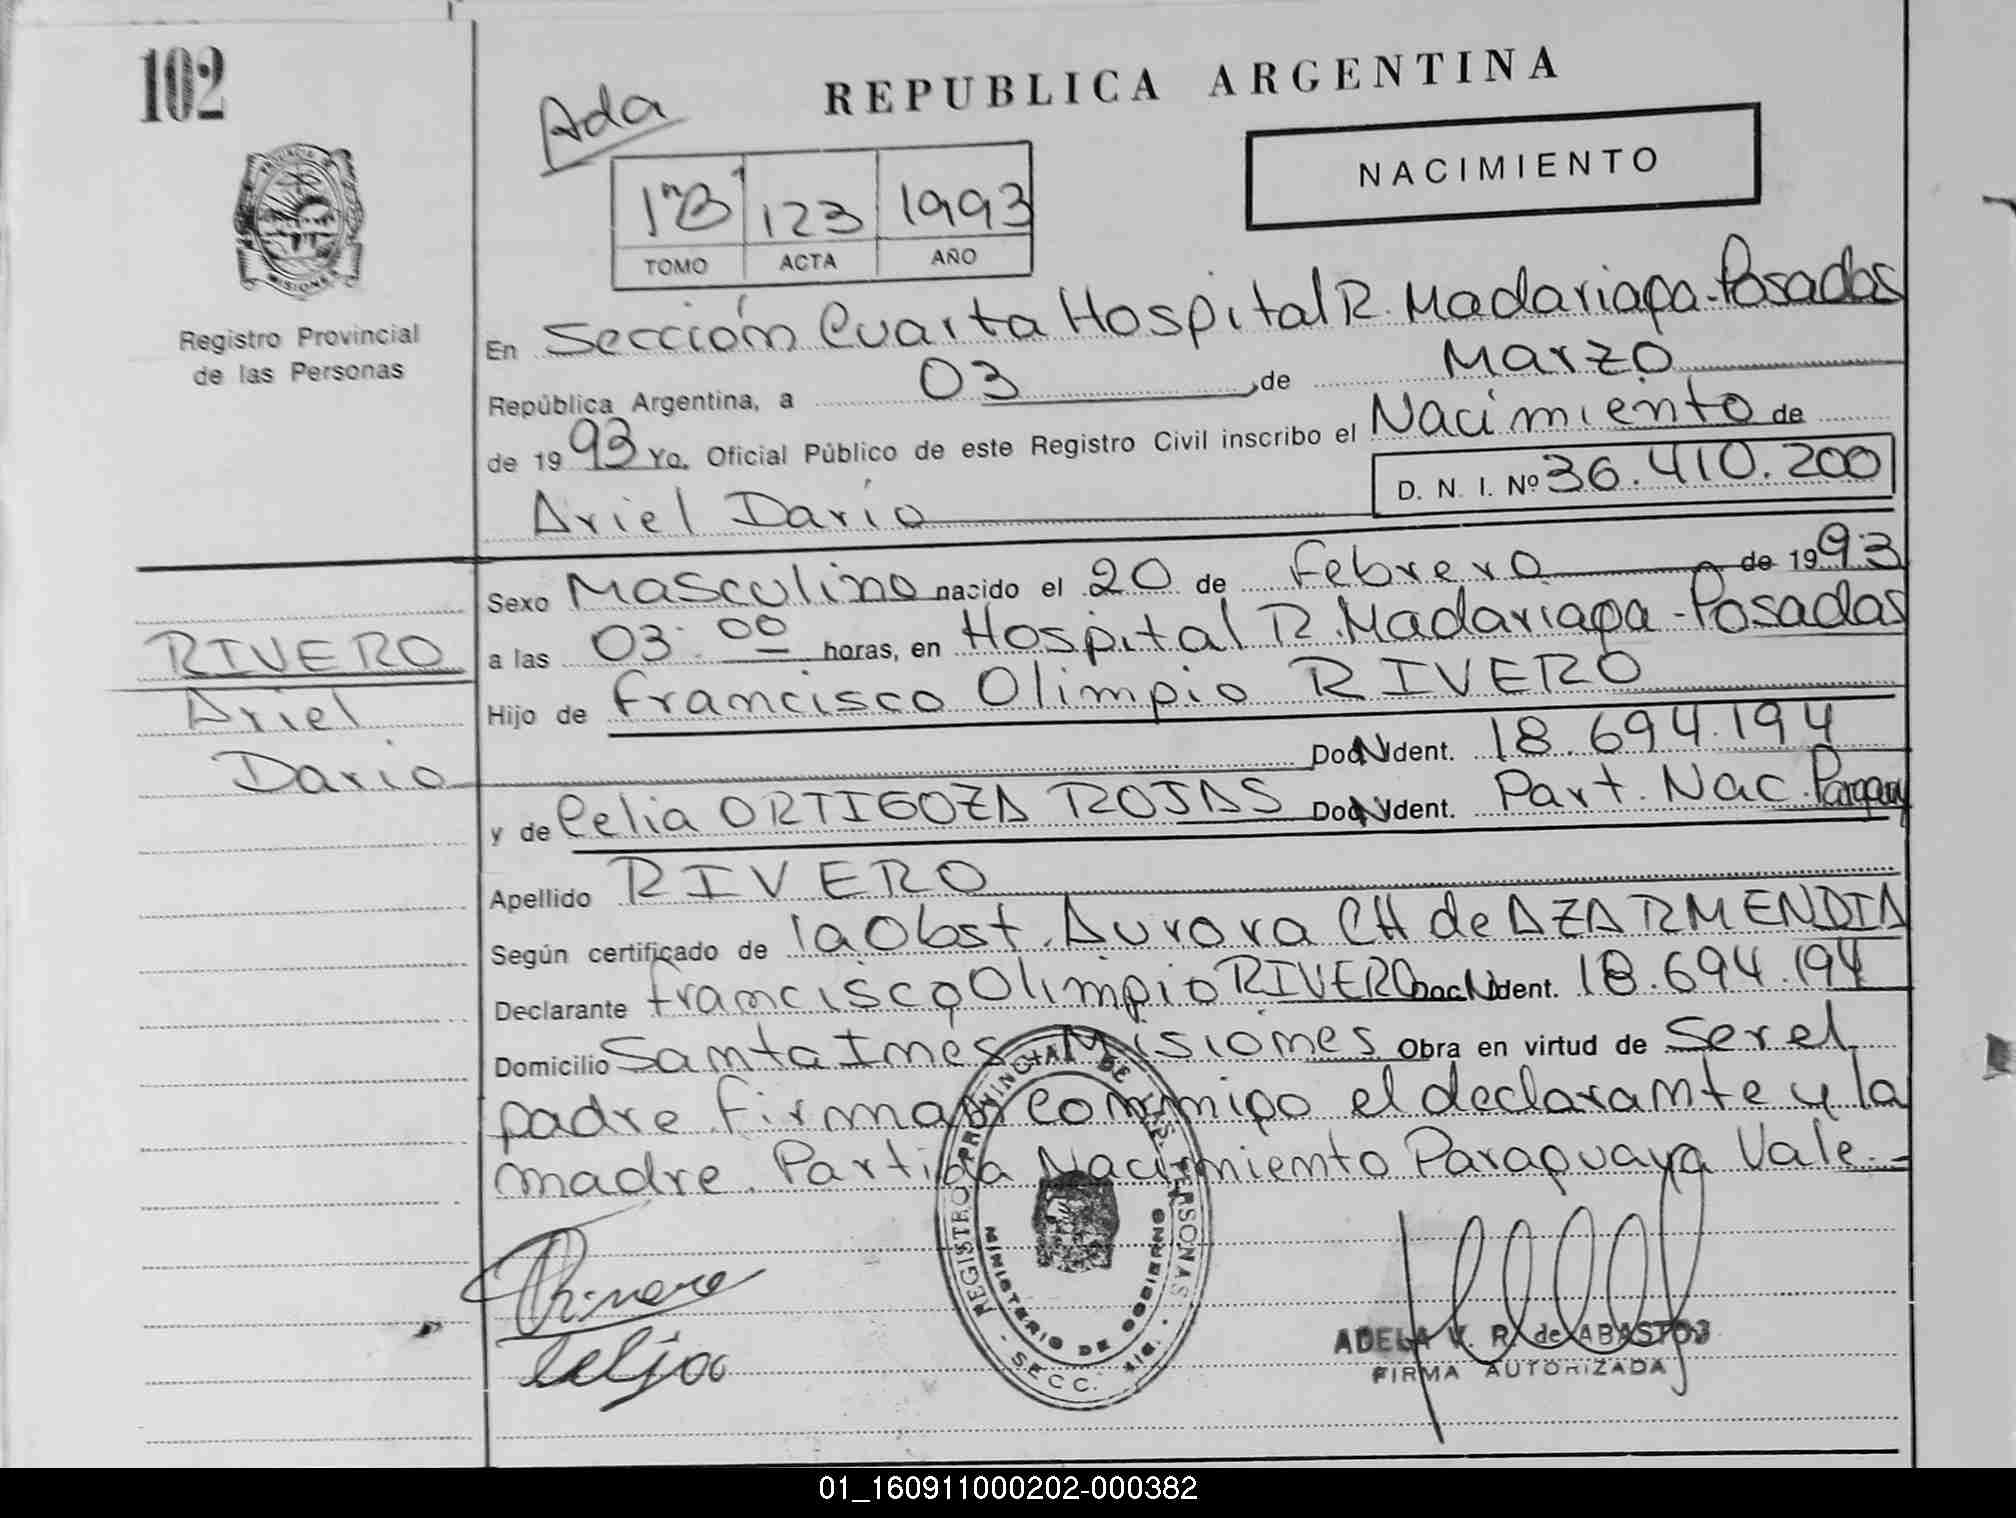 102
Ada
REPUBLICA ARGENTINA
NACIMIENTO
123 1993
TOMO ACTA AÑO
PROVINCIA DE MISIONES
Registro Provincial
de las Personas
En Sección Cuarta Hospital R. Madariaga - Posadas
República Argentina, a 03 de Marzo
de 1993 Yo, Oficial Público de este Registro Civil inscribo el Nacimiento de
D. N. I. Nº 36.410.200
Ariel Darío
Sexo Masculino nacido el 20 de Febrero de 1993
a las 03:00 horas, en Hospital R. Madariaga - Posadas
RIVERO
Ariel
Dario
Hijo de Francisco Olimpio RIVERO
Doc. Ident. 18.694.194
y de Celia ORTIGOZA ROJAS Doc. Ident. Part. Nac. Paraguay
Apellido RIVERO
Según certificado de la Obst. Aurora CH de AZARMENDIA
Declarante Francisco Olimpio RIVERO Doc. Ident. 18.694.194
Domicilio Santa Inés - Misiones Obra en virtud de ser el
padre firman conmigo el declarante y la
madre. Partida Nacimiento Paraguaya Vale.-
REGISTRO PROVINCIAL DE LAS PERSONAS
MINISTERIO DE GOBIERNO
SECC.
Celia
ADELA V. R. de ABASTOS
FIRMA AUTORIZADA
01_160911000202-000382